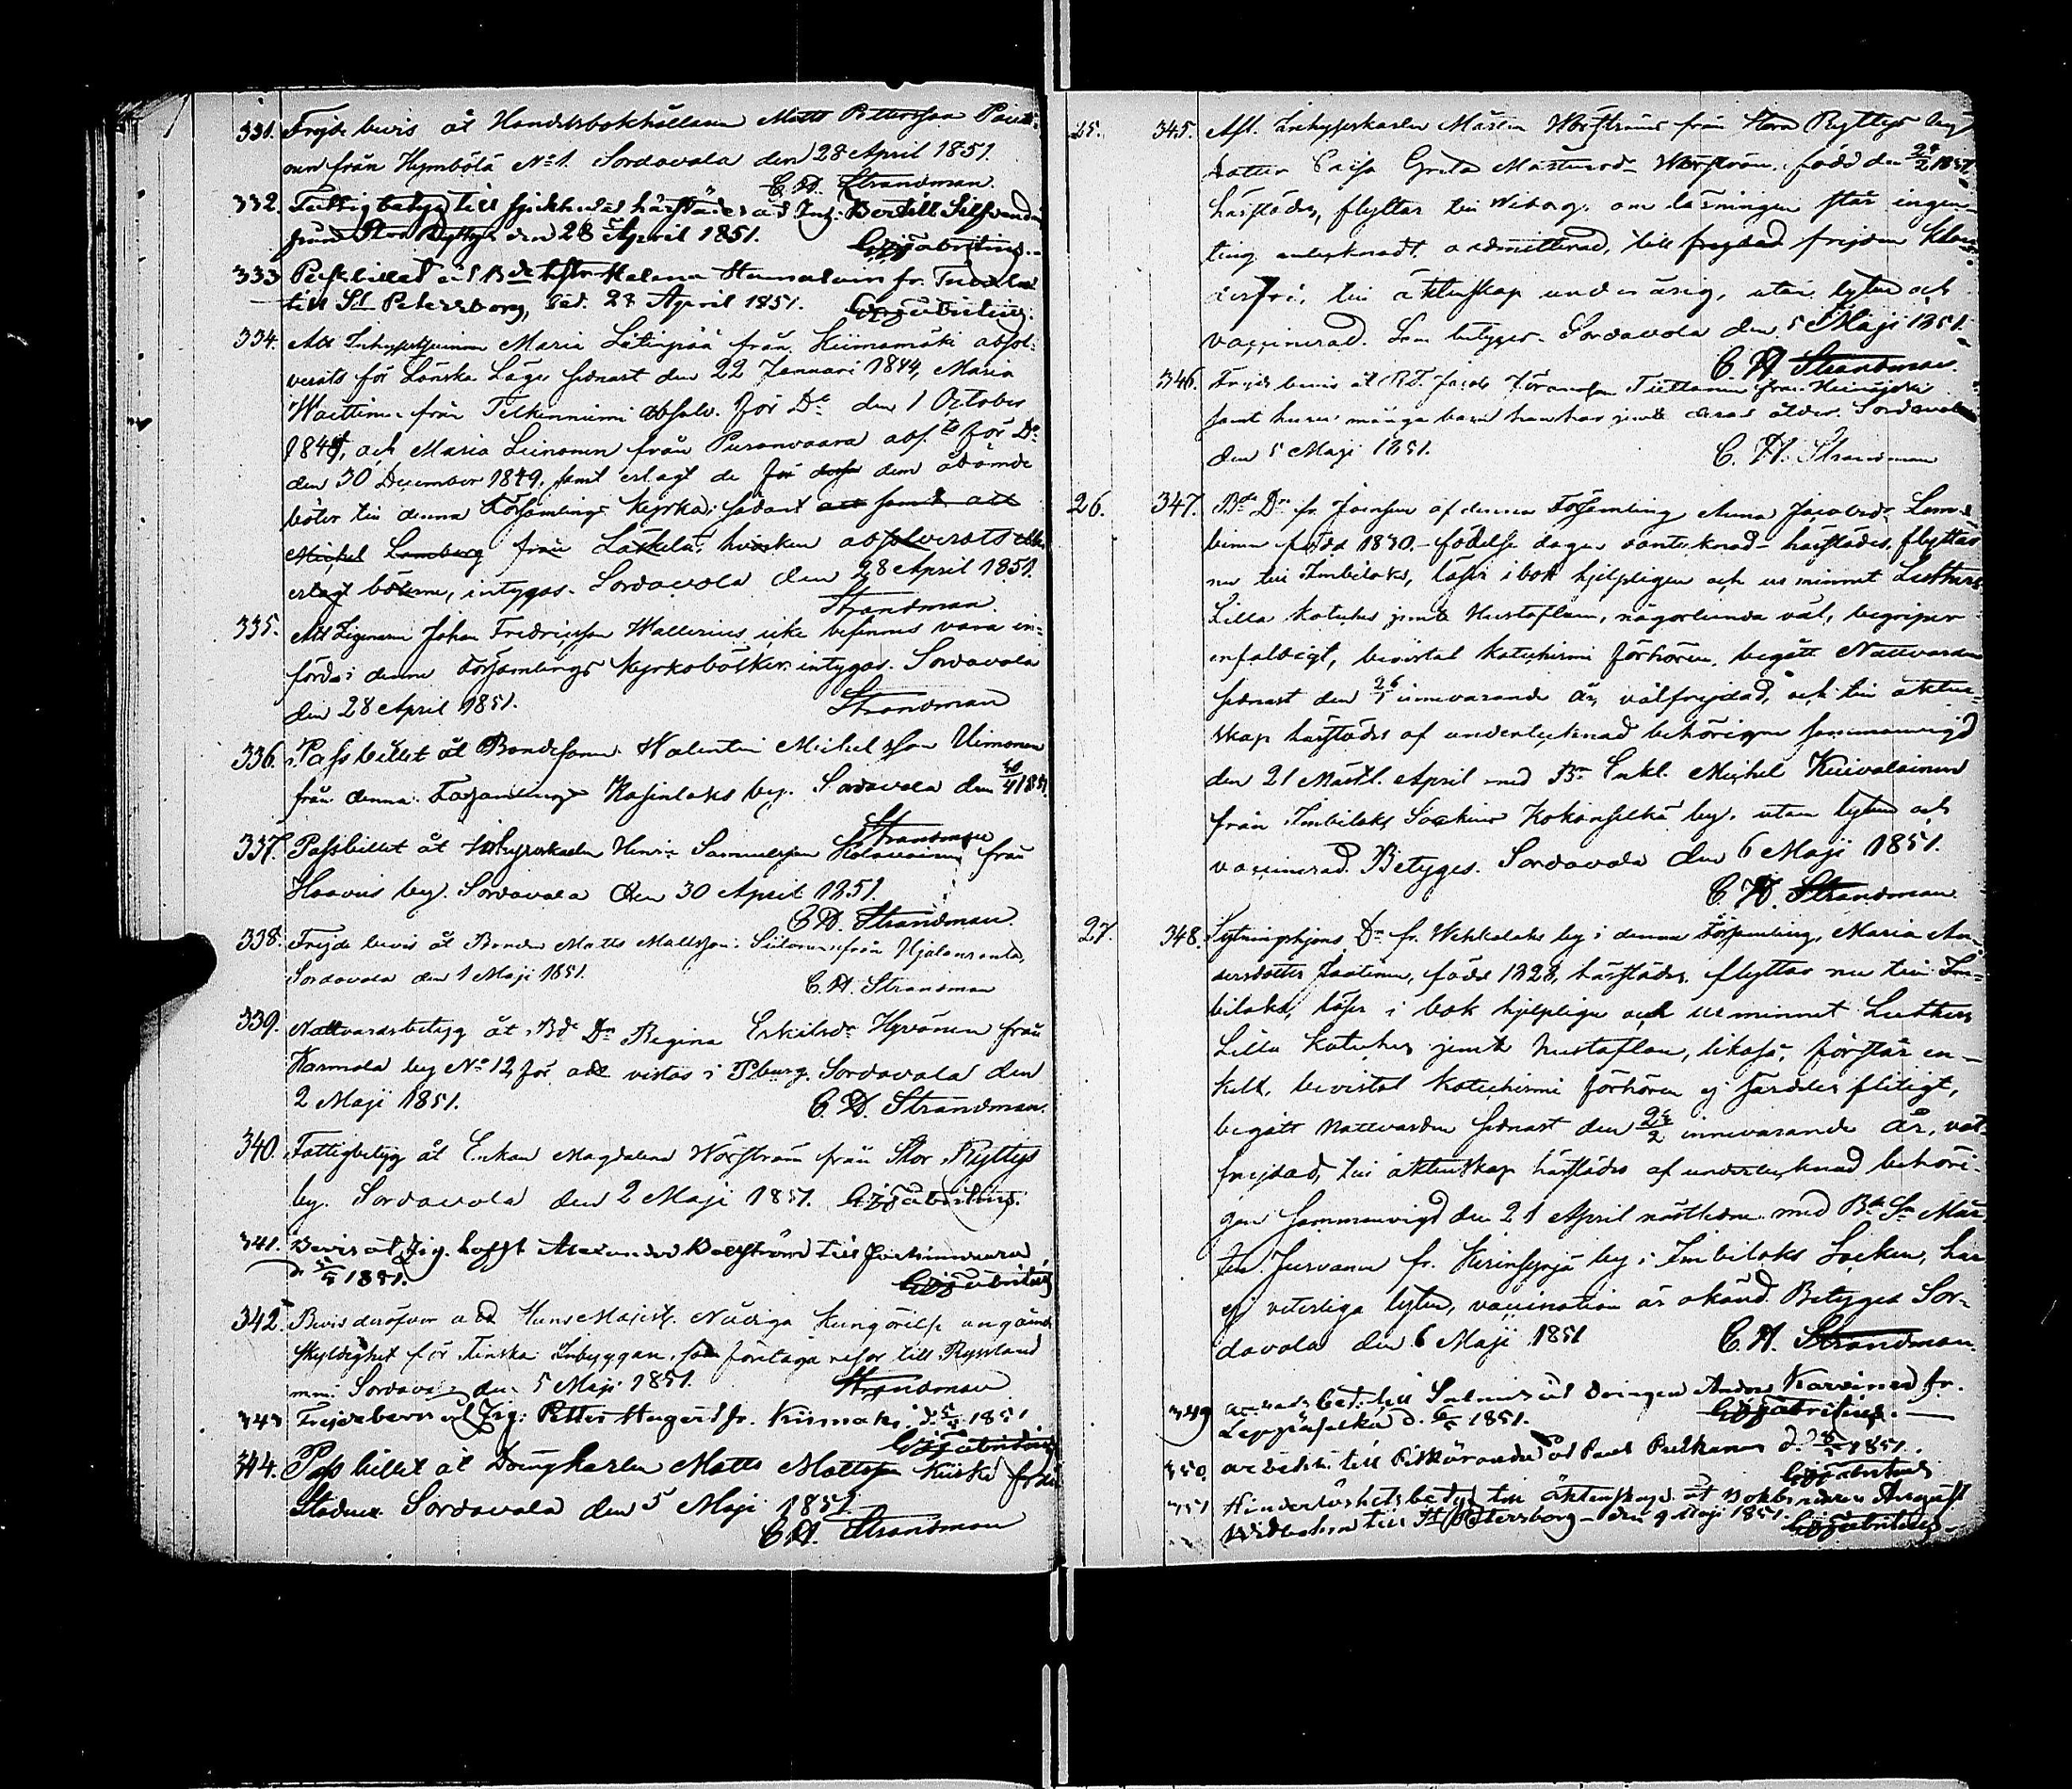 331. Frejde bevis åt Handelsbokhållaren Matts Pettersson
nen från Hymbölä No 1. Sordavala den 28 April 1851.
C. H. Strandman.
332. Fattigbetyg till härstädes åt Inh: Bertill
från Stor Ryttyt den 28 April 1851.
333 Passbillet åt Helena fr.
till St Petersborg, Sad. 28 April 1851.
334. Att Maria från Kiimamäki absol-
verats för Lönska Läger sednast den 22 Januari 1844, Maria
från absolv. för Do den 1 October
184 , och Maria Leinonen från Puronvaara abs. för Do
den 30 December 1849, samt erlagt de för dem ådömde
böter till denna Församlings Kyrka; sådant
Michel Lemberg från Läskelä, hvarken absolverats eller
erlagt böterne, intygas. Sordavala den 28 April 1851.
Strandman.
335. Att Zigenaren Johan Fredricsson Wallerius icke befinnes vara in-
förd i denna Församlings Kyrkoböcker, intygas. Sordavala
den 28 April 1851. Strandman
336. Passbillet åt Bondesonen Valentin Michelsson Uimonen
från denna Församlings by. Sordavala den 30/4 1851.
Strandman
337. Passbillet åt Inhyseskarlen Henric Samuelsson från
Haavus by. Sordavala den 30 April 1851.
C. H. Strandman.
338. Frejde bevis åt Bonden Matts Mattsson Siitonen från Hjalansranta,
Sordavala den 1 Maji 1851. C. H. Strandman
339. Nattvardsbetyg åt Bde Dn Regina Eskilsdr Hyvönen från
Karmala by No 12 för att vistas i Pburg. Sordavala den
2 Maji 1851. C. H. Strandman.
340. Fattigbetyg åt Enkan Magdalena Worström från Stor Ryttyt
by. Sordavala den 2 Maji 1851.
341. Bevis åt Zig. Alexander till
d. 5/5 1851.
342. Bevis derofvan att Hans Majest. Nådiga Kungörelse angående
skyldighet för Finska Inbyggare, som företaga resor till Ryssland
m.m. Sordavala den 5 Maji 1851. Strandman
343 Frejdebevis åt Zig: Petter Hagert fr. Kiimäki, d. 5/5 1851
344. Pass billet åt Drängkarlen Matts Mattsson Kiiski från
Staden. Sordavala den 5 Maji 1851.
C. H. Strandman
25. 345. Afl. Inhyseskarlen Mårten Worströms från Stora Ryttyt by
dotter Caisa Greta Mårtensdr Worström, född den
härstädes, flyttar till Wiborg, om läsningen står ingen-
ting antecknadt, admitterad, till frejden klan-
derfri, till äktenskap underårig, utan lyten och
vaccinerad. Som betyges. Sordavala den 5 Maji 1851.
C. H. Strandman
346. Frejde bevis åt Jacob Jöransson Tiittanen från
samt huru många barn han har jemte deras ålder. Sordavala
den 5 Maji 1851. C. H. Strandman
26. 347. Bde Dn fr. Joensuu af denna Församling Anna Jacobsdr Lem-
binen född 1830. födelse dagen oantecknad härstädes, flyttar
nu till Imbilaks, läser i bok hjelpligen och ur minnet Luthers
Lilla Kateches jemte Hustaflan, någorlunda väl, begriper
enfaldigt, bevistat Katechismi förhören, begått Nattvarden
sednast den 26/1 innevarande år, välfrejdad, och till äkten-
skap härstädes af undertecknad behörigen sammanvigd
den 21 sistl. April med Bn Enkl. Michel Kuivalainen
från Imbilaks Sockens Kokonselkä by, utan lyten och
vaccinerad. Betyges. Sordavala den 6 Maji 1851.
C. H. Strandman
27. 348. Sytningshjons Dn fr. by i denna Församling, Maria An-
dersdotter Jaatinen, född 1828, härstädes, flyttar nu till Im-
bilaks, läser i bok hjelpligen och ur minnet Luthers
Lilla Kateches jemte Hustaflan, likaså, förstår en-
kelt, bevistat Katechismi förhören ej särdeles flitigt,
begått Nattvarden sednast den innevarande år, väl-
frejdad, till äktenskap härstädes af undertecknad behöri-
gen sammanvigd den 21 April nästledne med Bde Sn Mår-
ten Jurvanen fr. Kirinsyrjä by i Imbilaks Socken, har
ej veterliga lyten, vaccination är okänd. Betyges Sor-
davala den 6 Maji 1851 C. H. Strandman.
349 bet. till Salmis åt drängen Anders Karvinen fr.
Leppäselkä d. 6/5 1851.
350. till Pitkäranda åt Paul d. 8/5 1851.
351 Hinderlöshetsbetyg till äktenskap åt Bokbindaren August
till St Petersborg den 9 Maji 1851.